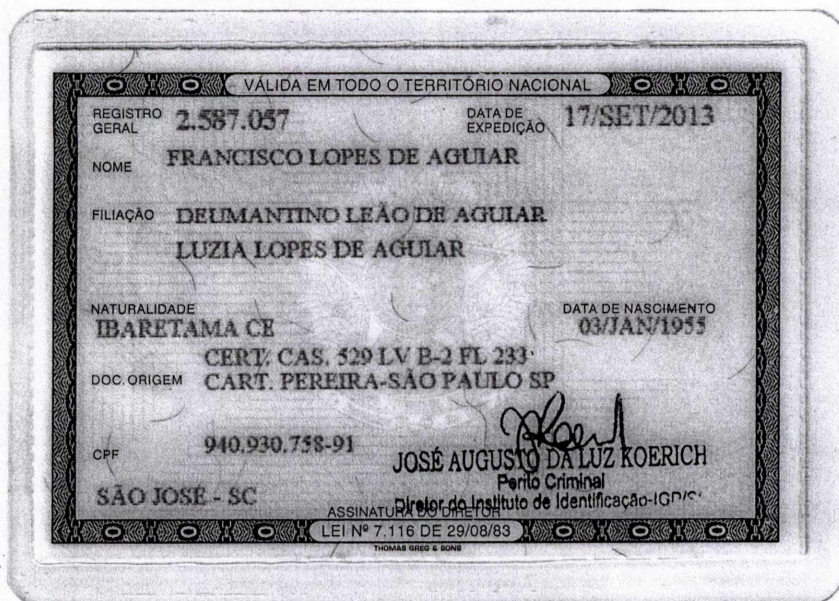 VÁLIDA EM TODO O TERRITÓRIO NACIONAL
REGISTRO GERAL 2.587.057 DATA DE EXPEDIÇÃO 17/SET/2013
NOME FRANCISCO LOPES DE AGUIAR
FILIAÇÃO DEUMANTINO LEÃO DE AGUIAR
LUZIA LOPES DE AGUIAR
NATURALIDADE DATA DE NASCIMENTO
IBARETAMA CE 03/JAN/1955
CERT. CAS. 529 LV B-2 FL 233
DOC. ORIGEM CART. PEREIRA-SÃO PAULO SP
CPF 940.930.758-91
JOSÉ AUGUSTO DA LUZ KOERICH
Perito Criminal
SÃO JOSÉ - SC Diretor do Instituto de Identificação-IGP/
ASSINATURA DO DIRETOR
LEI Nº 7.116 DE 29/08/83
THOMAS GREG & SONS